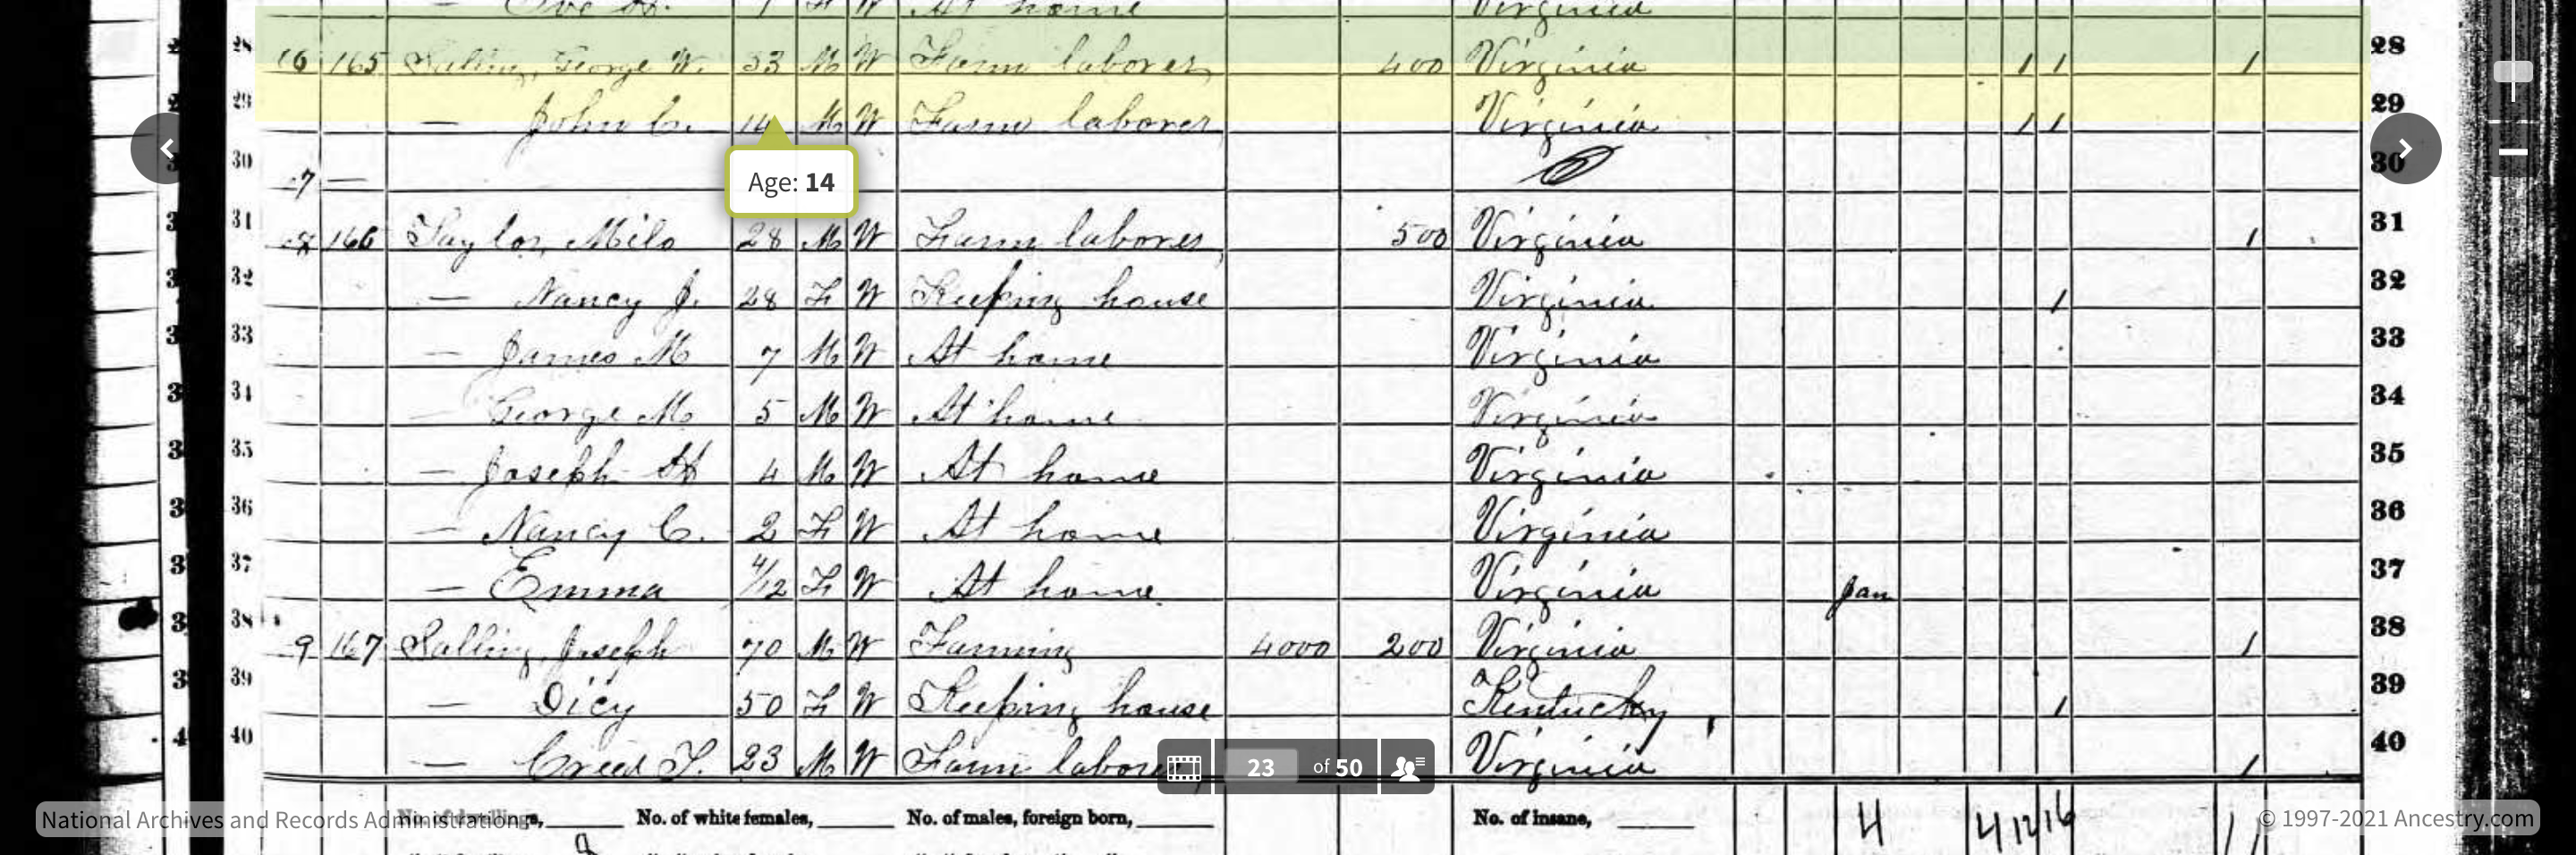 1 F W At home Virginia
28 165 Salling, George W. 33 M W Farm laborer 400 Virginia 1 1 1 28
29 — John C. 14 M W Farm laborer Virginia 1 1 29
30 7 — 30
Age: 14
31 166 Taylor, Milo 28 M W Farm laborer 500 Virginia 1 31
32 — Nancy J. 28 F W Keeping house Virginia 1 32
33 — James M 7 M W At home Virginia 33
34 — George M 5 M W At home Virginia 34
35 — Joseph H 4 M W At home Virginia 35
36 — Nancy C. 2 F W At home Virginia 36
37 — Emma 4/12 F W At home Virginia Jan 37
38 9 167 Salling, Joseph 70 M W Farming 4000 200 Virginia 1 38
39 — Dicy 50 F W Keeping house Kentucky 1 39
40 — Creed T. 23 M W Farm laborer Virginia 1 40
23 of 50
No. of dwellings, No. of white females, No. of males, foreign born, No. of insane, 4 4 12 16 11
National Archives and Records Administration
© 1997-2021 Ancestry.com